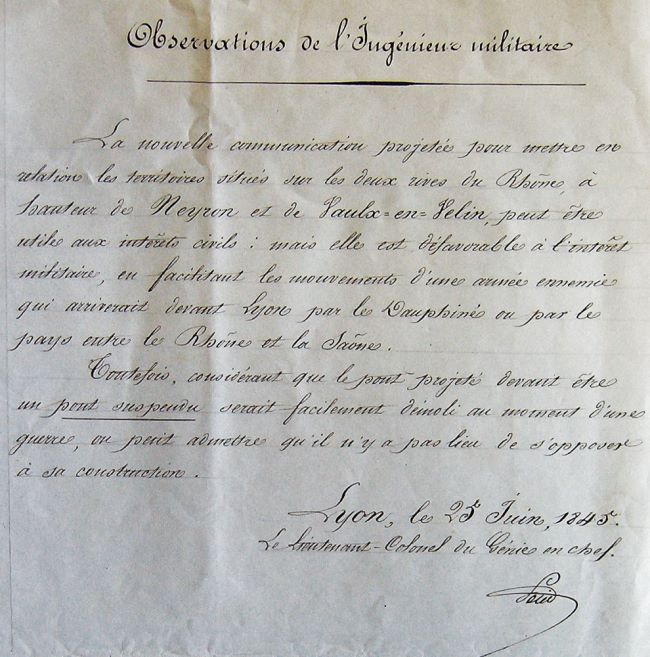 Observations de l'Ingénieur militaire
La nouvelle communication projetée pour mettre en
relation les territoires situés sur les deux rives du Rhône, à
hauteur de Neyron et de Vaulx=en=Velin, peut être
utile aux intérêts civils : mais elle est défavorable à l'intérêt
militaire, en facilitant les mouvements d'une armée ennemie
qui arriverait devant Lyon par le Dauphiné ou par le
pays entre le Rhône et la Saône.
Toutefois, considérant que le pont projeté devant être
un pont suspendu serait facilement démoli au moment d'une
guerre, on peut admettre qu'il n'y a pas lieu de s'opposer
à sa construction.
Lyon, le 25 Juin, 1845.
Le Lieutenant-Colonel du Génie en chef.